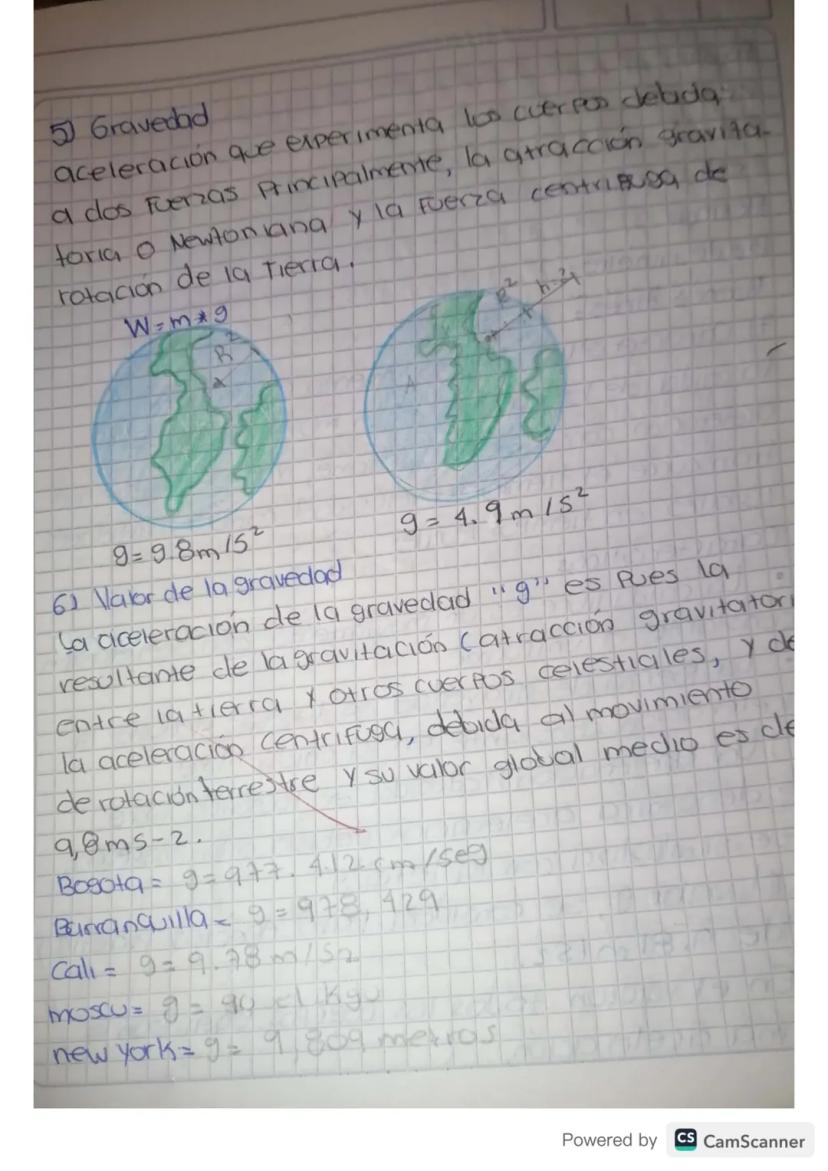 5) Gravedad
aceleración que experimenta los cuerpos debida
a dos Fuerzas Principalmente, la atracción gravita-
toria o Newtoniana y la Fuerza centrifuga de
rotación de la Tierra.
W=m*g
R²
R²
g=9.8m/s²
g=4.9m/s²
6) Valor de la gravedad
La aceleración de la gravedad "g" es pues la
resultante de la gravitación (atracción gravitatori
entre la tierra y otros cuerpos celestiales, y de
la aceleración centrífuga, debida al movimiento
de rotación terrestre y su valor global medio es de
9,8ms-2.
Bogota= g=977.412 cm/seg
Barranquilla= g=978,429
Cali= g=9.78m/s2
moscu= g=
new york= g= 9,809 metros
Powered by CS CamScanner